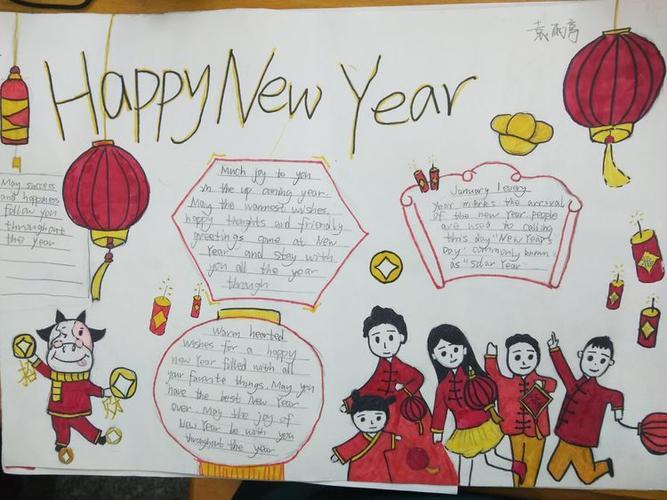 袁雨亭
Happy New Year
May success
and happiness
follow you
throughout
the year
Much joy to you
in the up coming year.
May the warmest wishes,
happy thoughts and friendly
greetings come at New
Year and stay with
you all the year
through
January 1 every
Year mikes the arrival
of the new Year. people
are used to calling
this day "New Years
Day" commonly known
as "solar Year"
Warm hearted
wishes for a happy
new Year filled with all
your favorite things. May you
have the best New Year
ever. May the joy of
New Year be with you
throughout the year